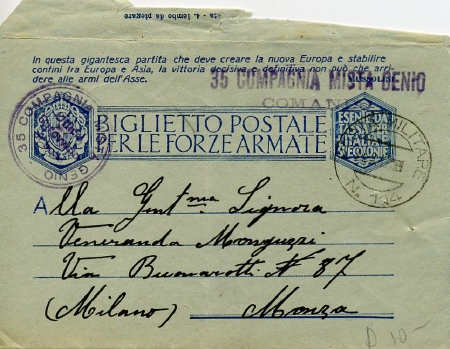 4. lembo da piegare
In questa gigantesca partita che deve creare la nuova Europa e stabilire
confini tra Europa e Asia, la vittoria decisiva e definitiva non può che arri-
dere alle armi dell'Asse.
MUSSOLINI
35 COMPAGNIA MISTA GENIO
COMANDO
35 COMPAGNIA MISTA GENIO
BIGLIETTO POSTALE
PER LE FORZE ARMATE
ESENTE DA
ITALIA
E COLONIE
MILITARE
Alla Gent.ma Signora
Veneranda Monguzzi
Via Buonarotti N° 87
(Milano) Monza
D 10-